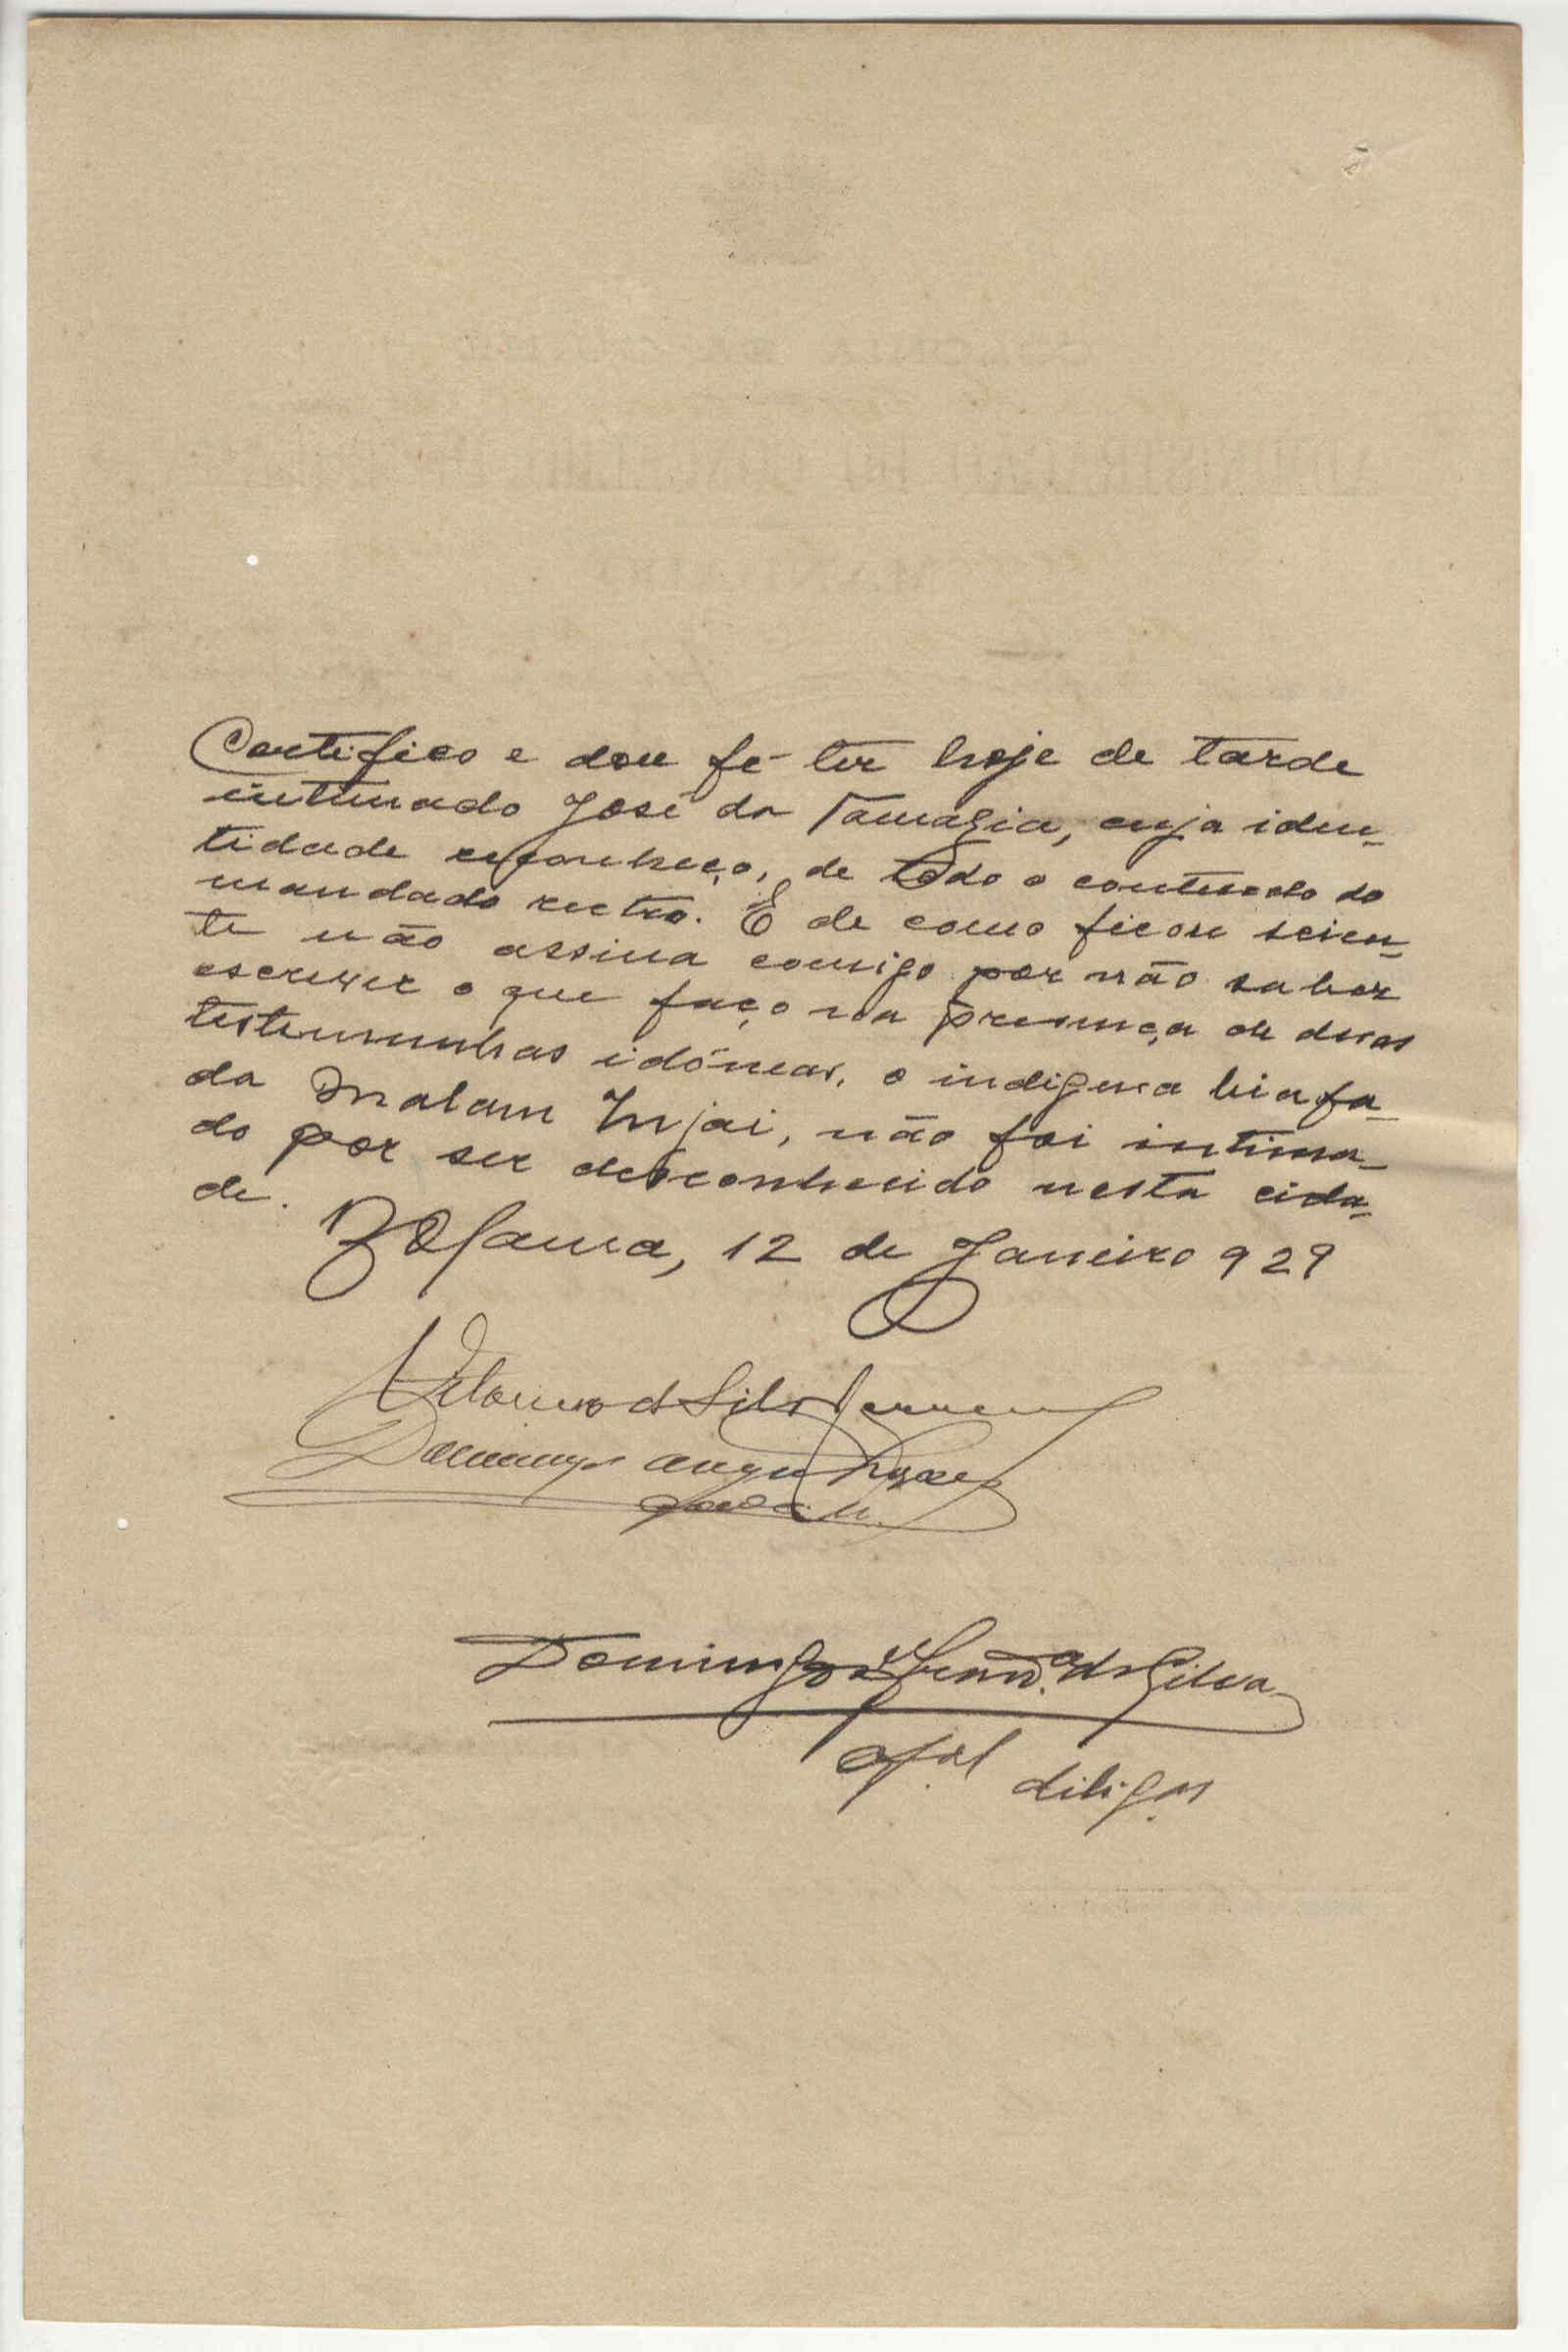 Certifico e dou fé ter hoje de tarde
intimado José da Tamagia, cuja iden-
tidade reconheço, de todo o conteudo do
mandado rectro. E de como ficou scien-
te não assina comigo por não saber
escrever o que faço na presença de duas
testemunhas idóneas, o indigena biafa-
da Malam Injai, não foi intima-
do por ser desconhecido nesta cida-
de.
Bolama, 12 de Janeiro 929
da Silva
Domingos
Domingos da Silva